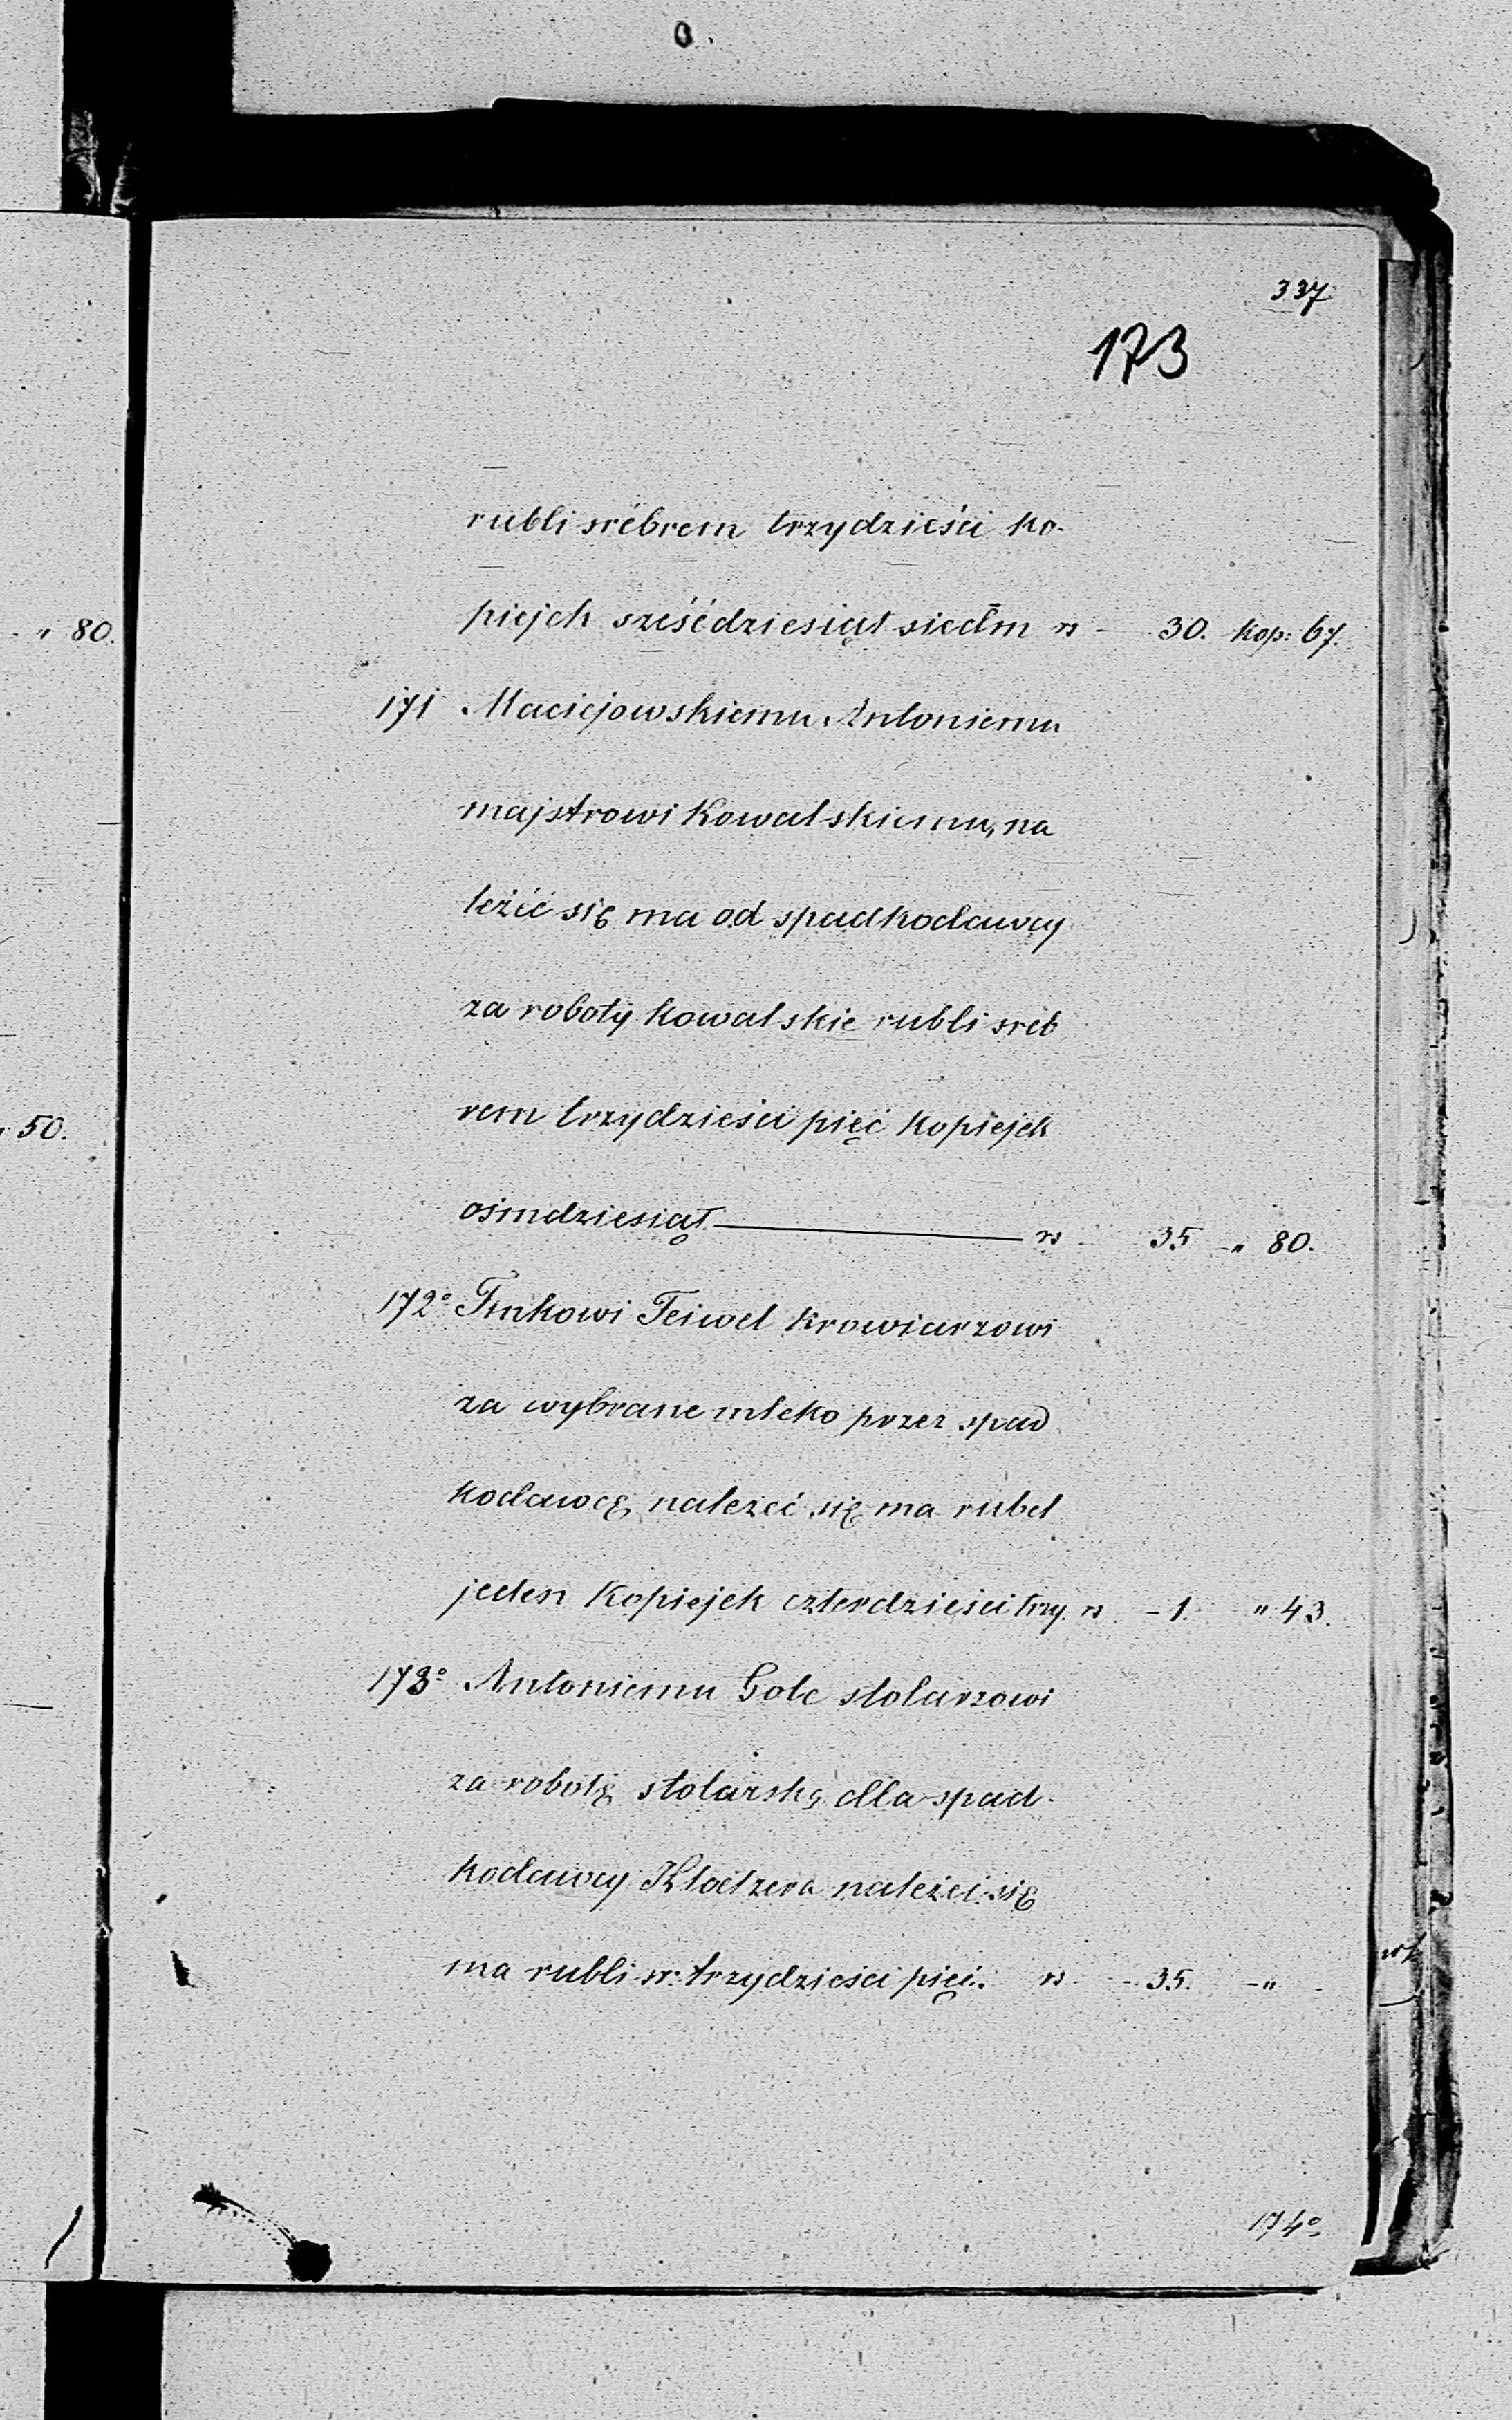 337
173
rubli srébrem trzydzieści ko-
piejek sześćdziesiąt siedm rs - 30. kop: 67.
" 80.
171 Maciejowskiemu Antoniemu
majstrowi Kowalskiemu, na
leżić się ma od spadkodawcy
za roboty kowalskie rubli sréb
rem trzydzieści pięć kopiejek
50.
ośmdziesiąt rs 35 - " 80.
172° Teiwel Krowiarzowi
za wybrane mleko przez spad
kodawcę należeć się ma rubel
jeden Kopiejek czterdzieści trzy. rs - 1. " 43.
173° Antoniemu Golc stolarzowi
za robotę stolarską dla spad-
kodawcy należeć się
ma rubli sr: trzydzieści pięć. rs - 35. - "
174°